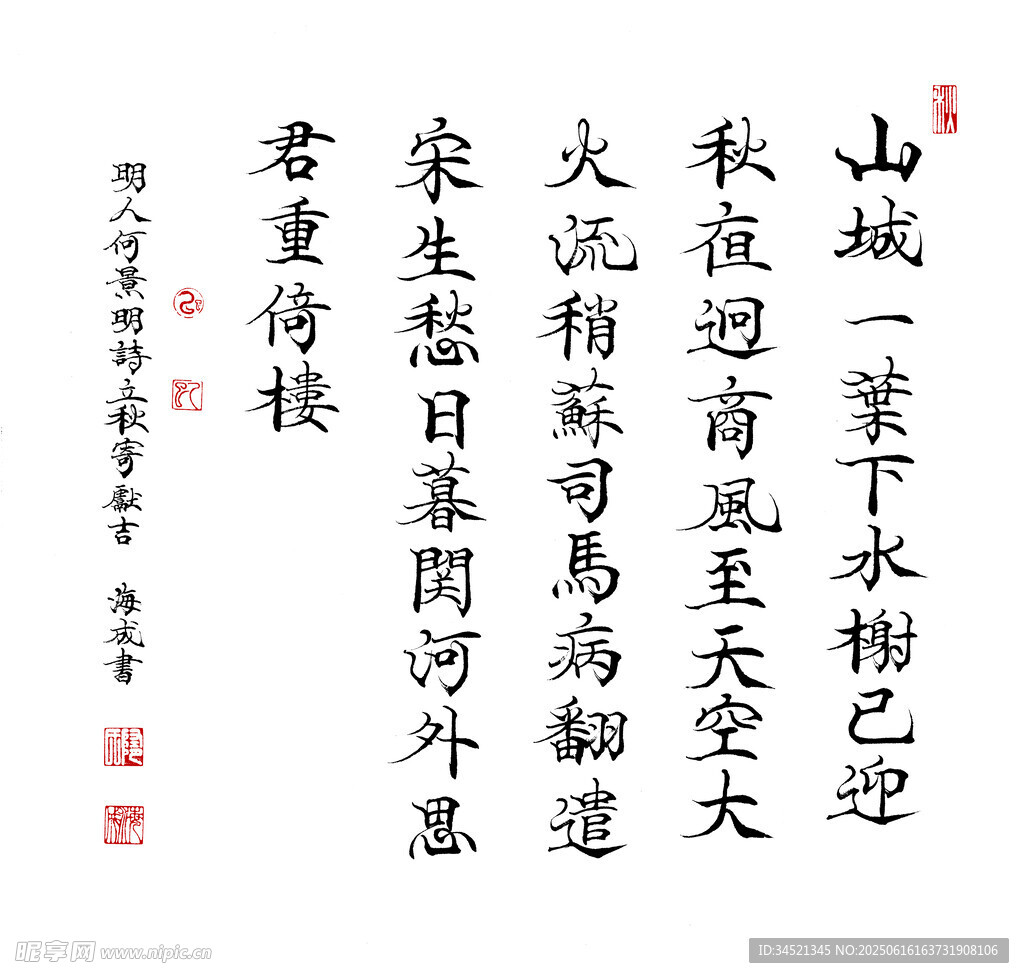 山城一葉下水榭已迎
秋夜迥商風至天空大
火流稍蘇司馬病翻遣
宋生愁日暮関河外思
君重倚樓
明人何景明詩立秋寄獻吉 海成書
秋
昵享网 www.nipic.cn
ID:34521345 NO:20250616163731908106